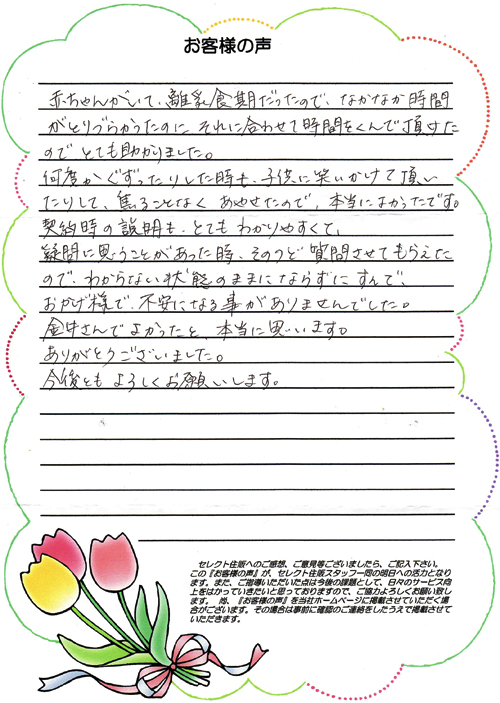 お客様の声
赤ちゃんがいて、離乳食期だったので、なかなか時間
がとりづらかったのに それに合わせて時間をくんで頂けた
ので とても助かりました。
何度かぐずったりした時も、子供に笑いかけて頂い
たりして、焦ることなく あやせたので、本当によかったです。
契約時の説明も、とても わかりやすくて、
疑問に思うことがあった時、そのつど 質問させてもらえた
ので、わからない状態のままにならずにすんで、
おかげ様で、不安になる事がありませんでした。
金中さんでよかったと、本当に思います。
ありがとうございました。
今後とも よろしくお願いします。
セレクト住販へのご感想、ご意見等ございましたら、ご記入下さい。
この『お客様の声』が、セレクト住販スタッフ一同の明日への活力となり
ます。また、ご指導いただいた点は今後の課題として、日々のサービス向
上をはかっていきたいと思っておりますので、ご協力よろしくお願い致し
ます。 尚、『お客様の声』を当社ホームページに掲載させていただく場
合がございます。その場合は事前に確認のご連絡をしたうえで掲載させて
いただきます。